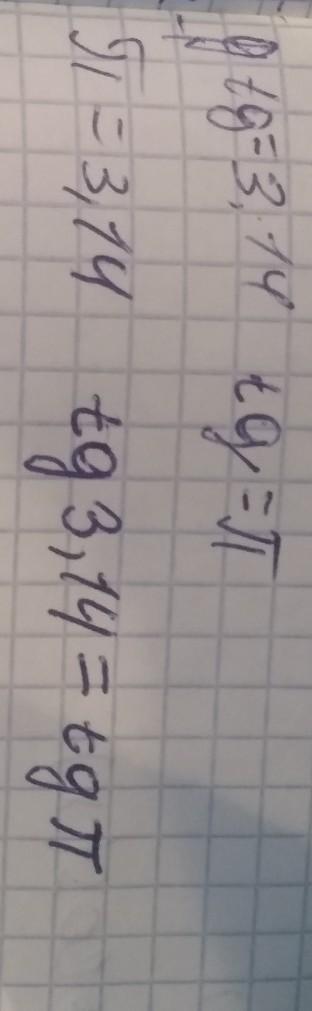 tg=3,14 tg=π
π=3,14 tg3,14=tgπ